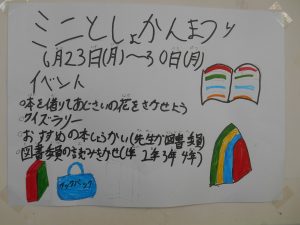 ミニとしょかんまつり
6月23日(月)〜30日(月)
イベント
○本を借りてあじさいの花をさかせよう
○クイズラリー
○おすすめの本しょうかい(先生が図書委員)
○図書委員のよみきかせ(1年 2年3年 4年)
ブックバック